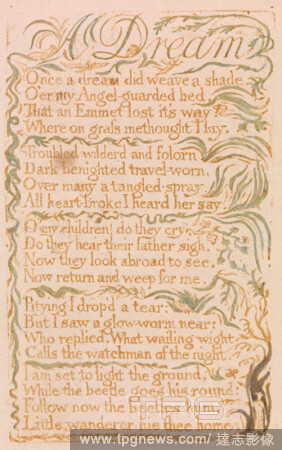 A Dream
Once a dream did weave a shade
O'er my Angel-guarded bed,
That an Emmet lost it's way
Where on grass methought I lay.
Troubled wilderd and folorn
Dark benighted travel-worn,
Over many a tangled spray
All heart-broke I heard her say.
O my children! do they cry,
Do they hear their father sigh.
Now they look abroad to see,
Now return and weep for me.
Pitying I drop'd a tear:
But I saw a glow-worm near:
Who replied. What wailing wight
Calls the watchman of the night.
I am set to light the ground,
While the beetle goes his round:
Follow now the beetles hum,
Little wanderer hie thee home.
www.tpgnews.com/達志影像